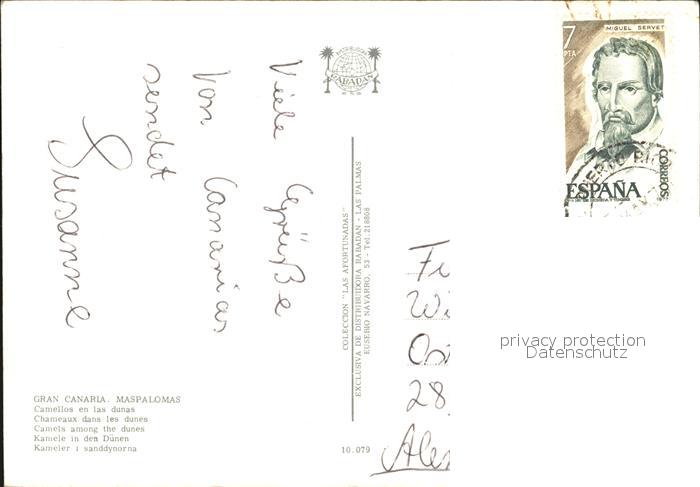 Viele Grüße
von Canarias
sendet
Susanne
RABADAN
GRAN CANARIA. MASPALOMAS
Camellos en las dunas
Chameaux dans les dunes
Camels among the dunes
Kamele in den Dünen
Kameler i sanddynorna
COLECCION "LAS AFORTUNADAS"
EXCLUSIVA DE DISTRIBUIDORA RABADAN - LAS PALMAS
EUSEBIO NAVARRO, 53 - Tel. 218808
10.079
7 PTA
MIGUEL SERVET
CORREOS
ESPAÑA
Wi
Ost
28
privacy protection
Datenschutz